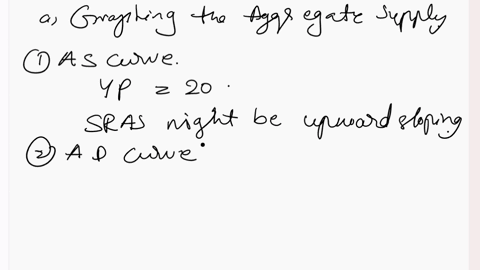 a, Graphing the Aggregate Supply
① AS curve.
YP = 20.
SRAS might be upward sloping
② AD curve